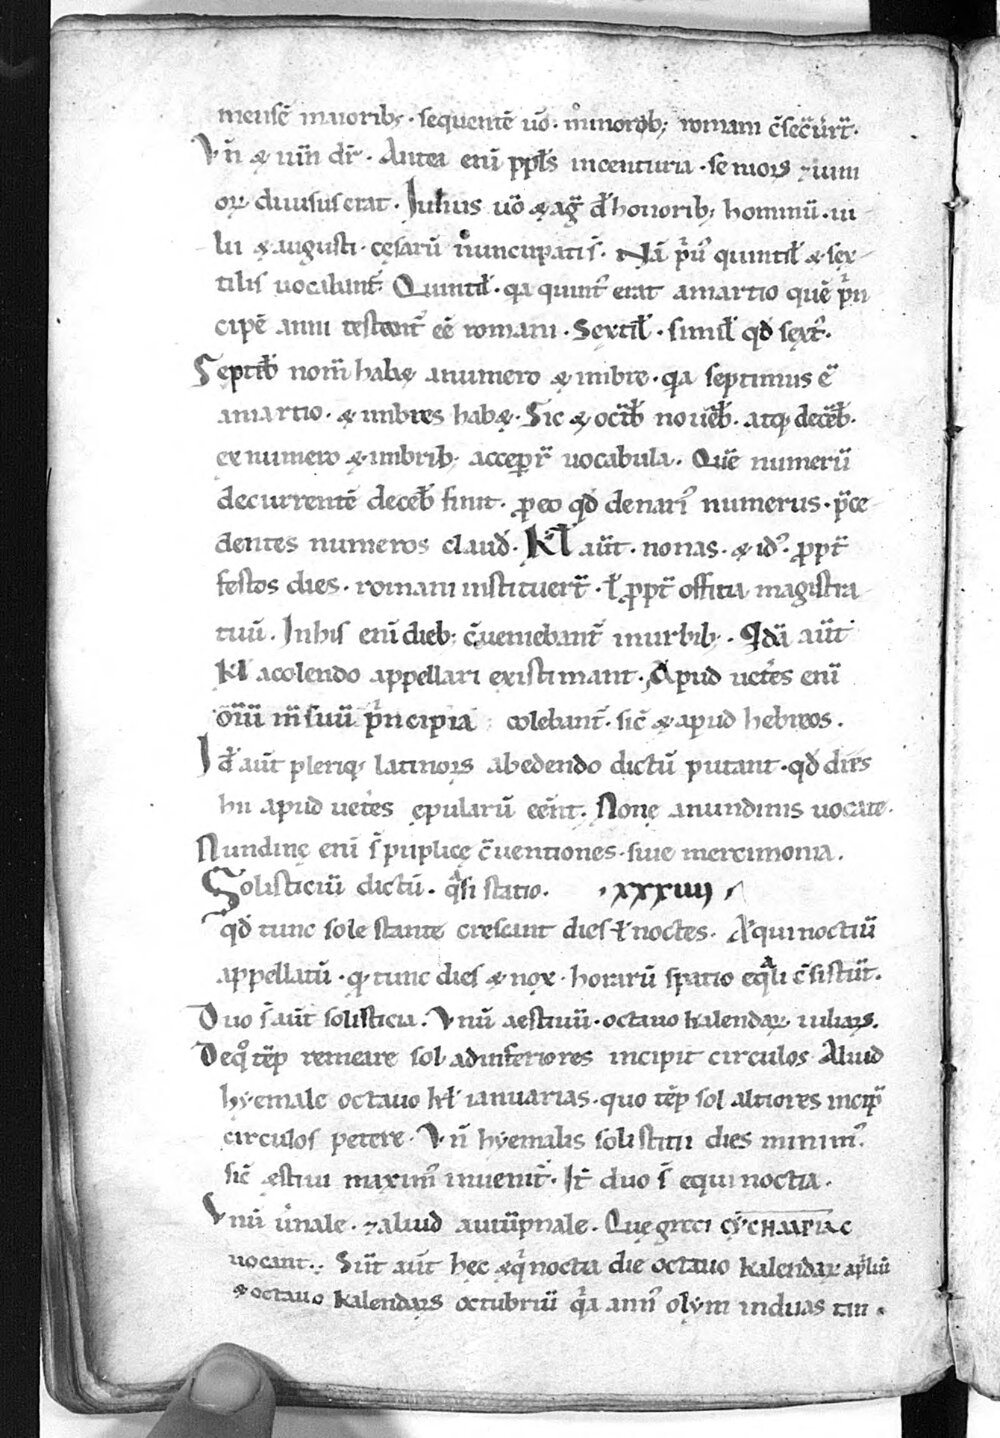 mensē maiorib; · sequentē uō · minorib; romam c̄sec̄ūrt̄·
Vn̄ & iun̄ dr̄ · Antea enī ppl̄s incenturia · seniors ⁊ iuni
oꝝ diuisus erat · Iulius uō & aḡꝰ d̄ honorib; hominū · iu
lii & augusti · cęsarū nuncupati s̄ · Nā p̄us quintil̄ & sex
tilis uocabant̄ Quintil̄ · qa quintꝰ erat amartio quē prin
cipē anni testant̄ eē romani · Sextil̄ · simil̄ qd̄ sextꝰ·
Septēb̄ nom̄ habę anumero & imbre · qa septimus ē
amartio · & imbres habę · Sic & octb̄ nouēb̄ · atq; decēb̄·
ex numero & imbrib; acceper̄ uocabula · Quē numerū
decurrentē decēb̄ finit · ꝓ eo qd̄ denariꝰ numerus · p̄ce
dentes numeros claud̄ · Kl̄ aūt · nonas · & idꝰ · ꝓpt̄
festos dies · romani instituer̄t · l̄ ꝓpt̄ offitia magistra
tuū · Inhis enī dieb; c̄ueniebant̄ inurbib; · Qdā aūt
Kl̄ acolendo appellari existimant · Apud uet̄es enī
om̄iū m̄suū principia colebant̄ · sic̄ & apud hebreos ·
Id̄ aūt pleriq; latinors abedendo dictū putant · qd̄ dies
hii apud uet̄es epularū eēnt · Nonę anundinis uocate·
Nundinę enī s̄ puplicę c̄uentiones · siue mercimonia ·
Solisticiū dictū · q̄si statio · · xxxiiij ·
qd̄ tunc sole stante crescant dies l̄ noctes · Aequinoctiū
appellatū · q; tunc dies & nox · horarū spatio eq̄li c̄sistūt·
Duo s̄ aūt solisticia · Vnū aestiuū · octauo kalendaꝝ iuliars·
Deqꝰ tēp remeare sol adinferiores incipit circulos Aliud
hyemale octauo kl̄ ianuarias · quo tēp sol altiores incip̄
circulos petere · Vn̄ hyemalis solistitii dies minimꝰ·
sic̄ ęstiui maximꝰ inuenit̄ · It̄ duo s̄ equinoctia ·
Vnū u̇nale · ⁊ aliud autūpnale · Quę greci
uocant · Sūt aūt hęc ęq̇noctia die octauo kalendaꝝ apliū
& octauo kalendars octubriū q̇a annꝰ olym induas tm̄ ·